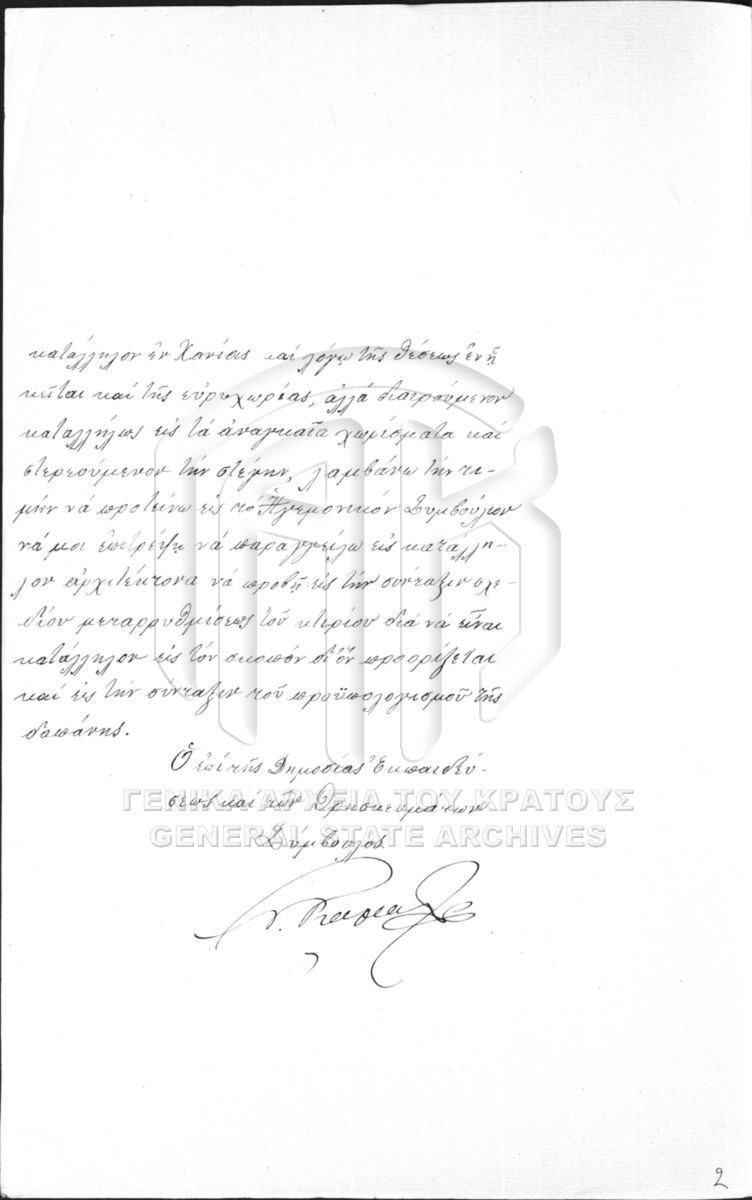 κατάλληλον ἐν Χανίοις καὶ λόγῳ τῆς θέσεως ἐν ᾗ
κεῖται καὶ τῆς εὐρυχωρίας, ἀλλὰ διαιρούμενον
καταλλήλως εἰς τὰ ἀναγκαῖα χωρίσματα καὶ
στερεούμενον τὴν στέγην, λαμβάνω τὴν τι-
μὴν νὰ προτείνω εἰς τὸ Ἡγεμονικὸν Συμβούλιον
νὰ μοι ἐπιτρέψῃ νὰ παραγγείλω εἰς κατάλλη-
λον ἀρχιτέκτονα νὰ προβῇ εἰς τὴν σύνταξιν σχε-
δίου μεταρρυθμίσεως τοῦ κτιρίου διὰ νὰ εἶναι
κατάλληλον εἰς τὸν σκοπὸν δι' ὃν προορίζεται
καὶ εἰς τὴν σύνταξιν τοῦ προϋπολογισμοῦ τῆς
δαπάνης.
Ὁ ἐπὶ τῆς Δημοσίας Ἐκπαιδεύ-
σεως καὶ τῶν Θρησκευμάτων
Σύμβουλος
ΓΕΝΙΚΑ ΑΡΧΕΙΑ ΤΟΥ ΚΡΑΤΟΥΣ
GENERAL STATE ARCHIVES
2